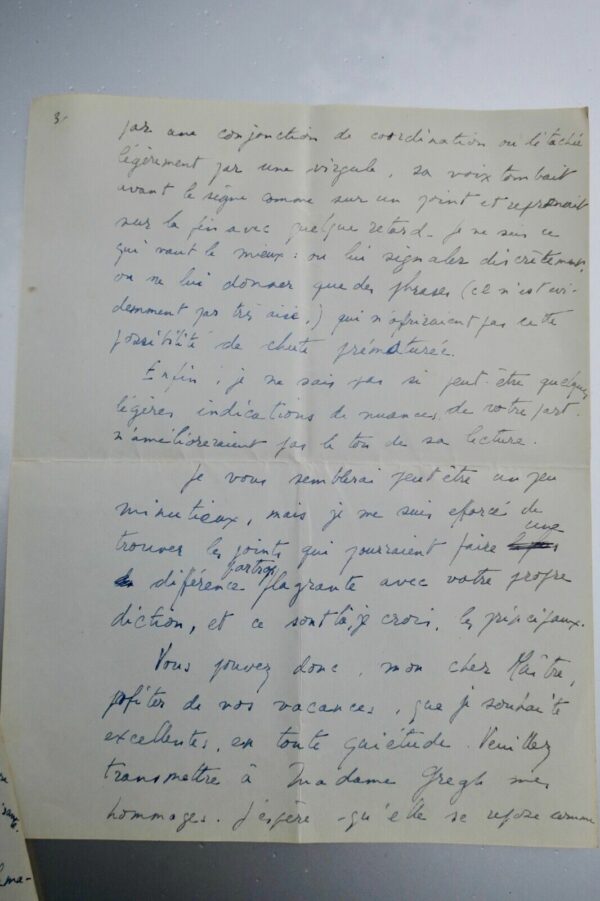 3.
par une conjonction de coordination ou détachée
légèrement par une virgule, sa voix tombait
avant le signe comme sur un point et reprenait
sur la fin avec quelque retard. Je ne sais ce
qui vaut le mieux : ou lui signaler discrètement,
ou ne lui donner que des phrases (ce n'est évi-
demment pas très aisé !) qui n'offriraient pas cette
possibilité de chute prématurée.
Enfin, je ne sais pas si peut-être quelques
légères indications de nuances de votre part
n'amélioreraient pas le ton de sa lecture.
Je vous semblerai peut être un peu
minutieux, mais je me suis efforcé de
trouver les points qui pourraient faire une
parfois
différence flagrante avec votre propre
diction, et ce sont là, je crois, les principaux.
Vous pouvez donc, mon cher Maître,
profiter de vos vacances, que je souhaite
excellentes, en toute quiétude. Veuillez
transmettre à Madame Gregh mes
hommages. J'espère qu'elle se repose comme
sans
ma-